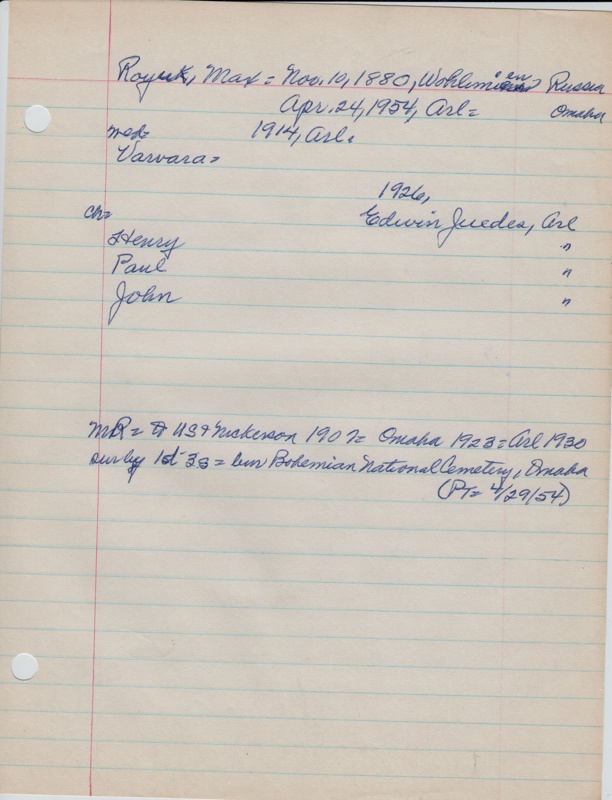 Royuk, Max = Nov. 10, 1880, Wohlimien Russia
Apr. 24, 1954, Arl = Omaha
med= 1914, Arl.
Varvara =
1926,
ch= Edwin Juedes, Arl
Henry "
Paul "
John "
MR = to US + Nickerson 1907 = Omaha 1923 = Arl 1930
sur by 1st 3s = bur Bohemian National Cemetery, Omaha
(PT= 4/29/54)